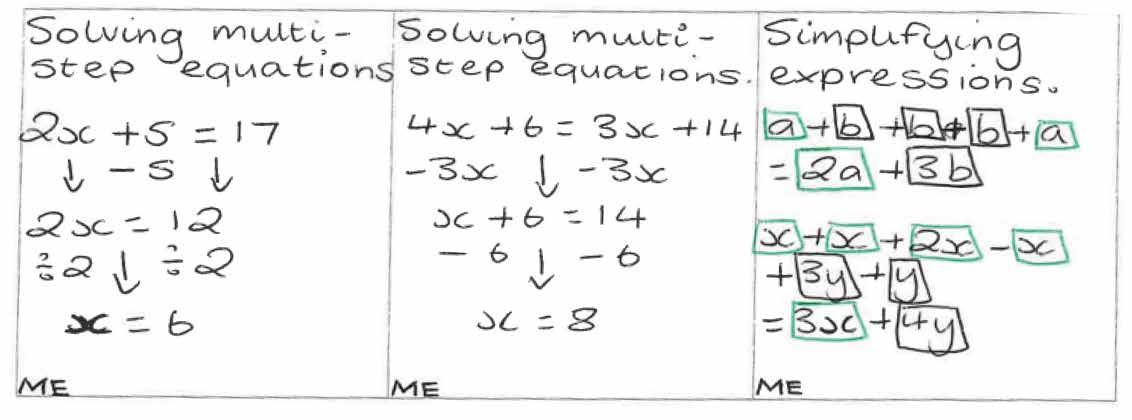 Solving multi-
step equations
2x + 5 = 17
↓ - 5 ↓
2x = 12
÷2 ↓ ÷2
x = 6
ME
Solving multi-
step equations.
4x + 6 = 3x + 14
-3x ↓ -3x
x + 6 = 14
- 6 ↓ - 6
x = 8
ME
Simplifying
expressions.
a + b + b + b + a
= 2a + 3b
x + x + 2x - x
+ 3y + y
= 3x + 4y
ME